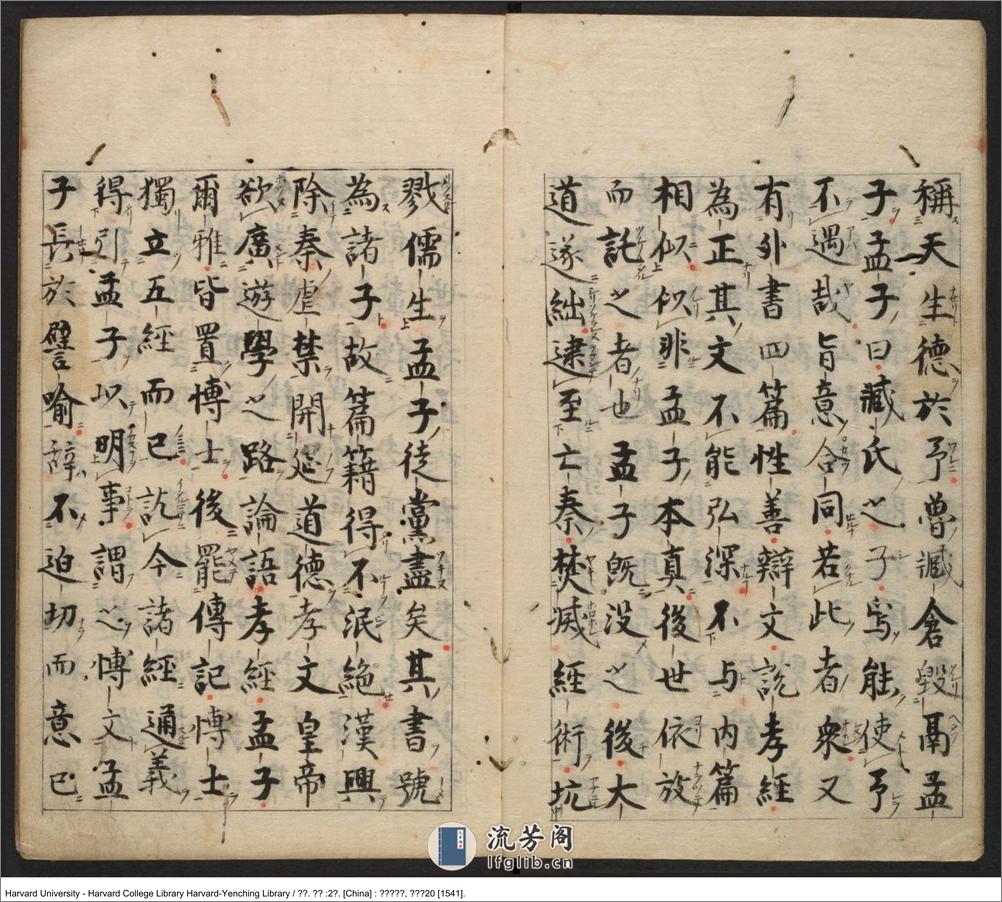 稱天生德於予魯臧倉毀鬲孟
子孟子曰臧氏之子焉能使予
不遇哉旨意合同若此者衆又
有外書四篇性善辯文說孝經
為正其文不能弘深不与内篇
相似似非孟子本真後世依放
而託之者也孟子既没之後大
道遂絀逮至亡秦焚滅經術坑
戮儒生孟子徒黨盡矣其書號
為諸子故篇籍得不泯絕漢興
除秦虐禁開延道德孝文皇帝
欲廣遊學之路論語孝經孟子
爾雅皆置博士後罷傳記博士
獨立五經而已訖今諸經通義
得引孟子以明事謂之博文孟
子長於譬喻辭不迫切而意已
流芳阁
lfglib.cn
Harvard University - Harvard College Library Harvard-Yenching Library / ??. ?? :2?. [China] : ?????, ???20 [1541].